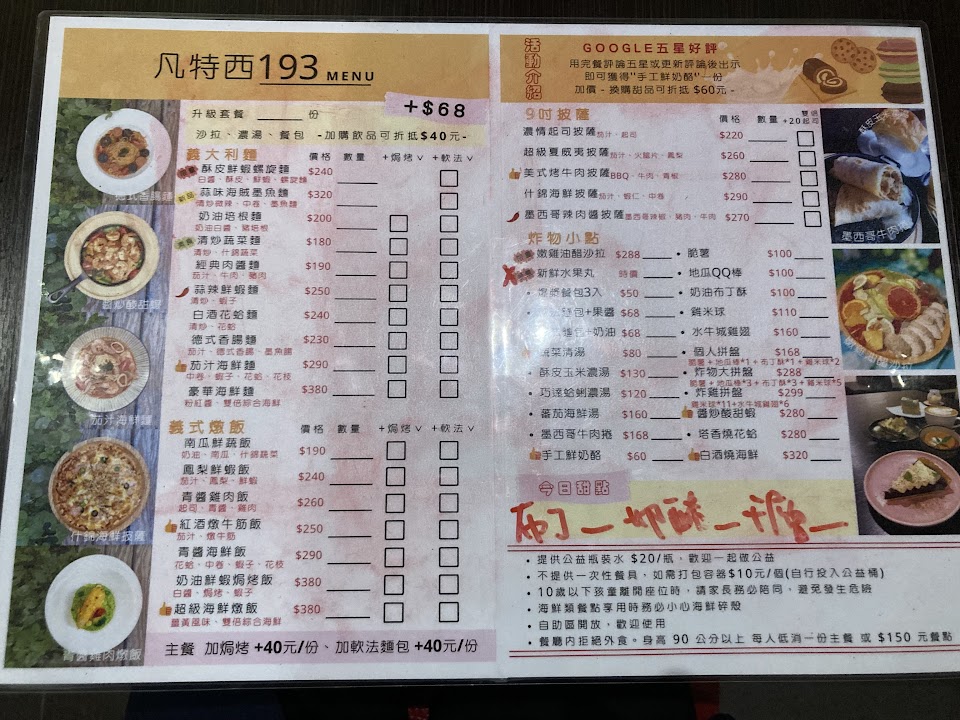 凡特西193 MENU
+$68
升級套餐 ______ 份
沙拉、濃湯、餐包 -加購飲品可折抵$40元-
義大利麵 價格 數量 +焗烤∨ +軟法∨
酥皮鮮蝦螺旋麵 $240
白醬、酥皮、鮮蝦、螺旋麵
蒜味海賊墨魚麵 $320
清炒微辣、中卷、墨魚麵
奶油培根麵 $200
奶油白醬、豬培根
清炒蔬菜麵 $180
清炒、什錦蔬菜
經典肉醬麵 $190
茄汁、牛肉、豬肉
蒜辣鮮蝦麵 $250
清炒、蝦子
白酒花蛤麵 $240
清炒、花蛤
德式香腸麵 $230
茄汁、德式香腸、墨魚腸
茄汁海鮮麵 $290
中卷、蝦子、花蛤、花枝
豪華海鮮麵 $380
粉紅醬、雙倍綜合海鮮
義式燉飯 價格 數量 +焗烤∨ +軟法∨
南瓜鮮蔬飯 $190
奶油、南瓜、什錦蔬菜
鳳梨鮮蝦飯 $240
茄汁、鳳梨、鮮蝦
青醬雞肉飯 $260
起司、青醬、雞肉
紅酒燉牛筋飯 $250
茄汁、中卷、燉牛筋
青醬海鮮飯 $290
花蛤、中卷、蝦子、花枝
奶油鮮蝦焗烤飯 $380
白醬、焗烤、鮮蝦
超級海鮮燉飯 $380
薑黃風味、雙倍綜合海鮮
主餐 加焗烤 +40元/份、加軟法麵包 +40元/份
德式香腸麵
茄汁海鮮麵
什錦海鮮披薩
青醬雞肉燉飯
活動介紹
GOOGLE五星好評
用完餐評論五星或更新評論後出示
即可獲得"手工鮮奶酪"一份
加價 - 換購甜品可折抵 $60元 -
9吋披薩 價格 數量 雙倍+20起司
濃情起司披薩 茄汁、起司 $220
超級夏威夷披薩 茄汁、火腿片、鳳梨 $260
美式烤牛肉披薩 BBQ、牛肉、青椒 $280
什錦海鮮披薩 茄汁、蝦仁、中卷 $290
墨西哥辣肉醬披薩 墨西哥辣椒、豬肉、牛肉 $270
炸物小點
嫩雞油醋沙拉 $288
新鮮水果丸 時價
餐包3入 $50
包+果醬 $68
包+奶油 $68
蔬菜清湯 $80
酥皮玉米濃湯 $130
巧達蛤蜊濃湯 $120
蕃茄海鮮湯 $160
墨西哥牛肉捲 $168
手工鮮奶酪 $60
脆薯 $100
地瓜QQ棒 $100
奶油布丁酥 $100
雞米球 $110
水牛城雞翅 $160
個人拼盤 $168
脆薯+地瓜棒*1+布丁酥*1+雞米球*2
炸物大拼盤 $288
脆薯+地瓜棒*3+布丁酥*3+雞米球*5
炸雞拼盤 $299
雞米球*11+水牛城雞翅*6
醬炒酸甜蝦 $280
塔香燒花蛤 $280
白酒燒海鮮 $320
酥皮玉米
墨西哥牛肉捲
今日甜點
布丁 奶酪
• 提供公益瓶裝水 $20/瓶，歡迎一起做公益
• 不提供一次性餐具，如需打包容器$10元/個(自行投入公益桶)
• 10歲以下孩童離開座位時，請家長務必陪同，避免發生危險
• 海鮮類餐點享用時務必小心海鮮碎殼
• 自助區開放，歡迎使用
• 餐廳內拒絕外食。身高 90 公分以上 每人低消一份主餐 或 $150 元餐點